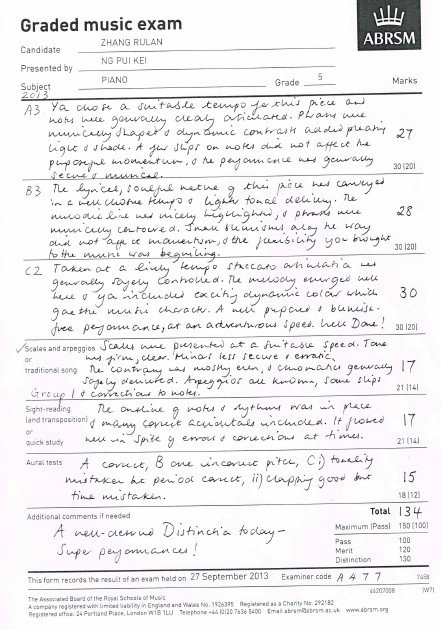 Graded music exam
ABRSM
Candidate ZHANG RULAN
Presented by NG PUI KEI
Subject PIANO Grade 5 Marks
2013
A3 You chose a suitable tempo for this piece and
notes were generally clearly articulated. Phrases were
musically shaped & dynamic contrasts added pleasing
light & shade. A few slips on notes did not affect the 27
purposeful momentum, & the performance was generally
secure & musical. 30 (20)
B3 The lyrical, soulful nature of this piece was conveyed
in a well chosen tempo & lighter tonal delivery. The
melodic line was nicely highlighted, & phrases were 28
musically contoured. Small blemishes along the way
did not affect momentum, & the flexibility you brought
to the music was beguiling. 30 (20)
C2 Taken at a lively tempo staccato articulation was
generally safely controlled. The melody emerged well
here & you included exciting dynamic colour which 30
gave the music character. A well prepared & blemish-
free performance, at an adventurous speed. Well Done! 30 (20)
Scales and arpeggios Scales were presented at a suitable speed. Tone
or was firm, clear. Minors less secure & erratic.
traditional song The contrary was mostly even, & chromatic generally 17
safely delivered. Arpeggios are known, some slips 21 (14)
Group 1 & corrections to notes.
Sight-reading The outline of notes & rhythms was in place
(and transposition) & many correct accidentals included. It flowed 17
or well in spite of errors & corrections at times.
quick study 21 (14)
Aural tests A correct, B one incorrect pitch, C i) tonality
mistaken but period correct, ii) clapping good but 15
time mistaken. 18 (12)
Additional comments if needed Total 134
A well-deserved Distinction today - Maximum (Pass) 150 (100)
Super performances! Pass 100
Merit 120
Distinction 130
This form records the result of an exam held on 27 September 2013 Examiner code A477 745B
4620700B (W7)
The Associated Board of the Royal Schools of Music
A company registered with limited liability in England and Wales No. 1926395 Registered as a Charity No. 292182
Registered office: 24 Portland Place, London W1B 1LU Telephone +44 (0)20 7636 5400 Email abrsm@abrsm.ac.uk www.abrsm.org